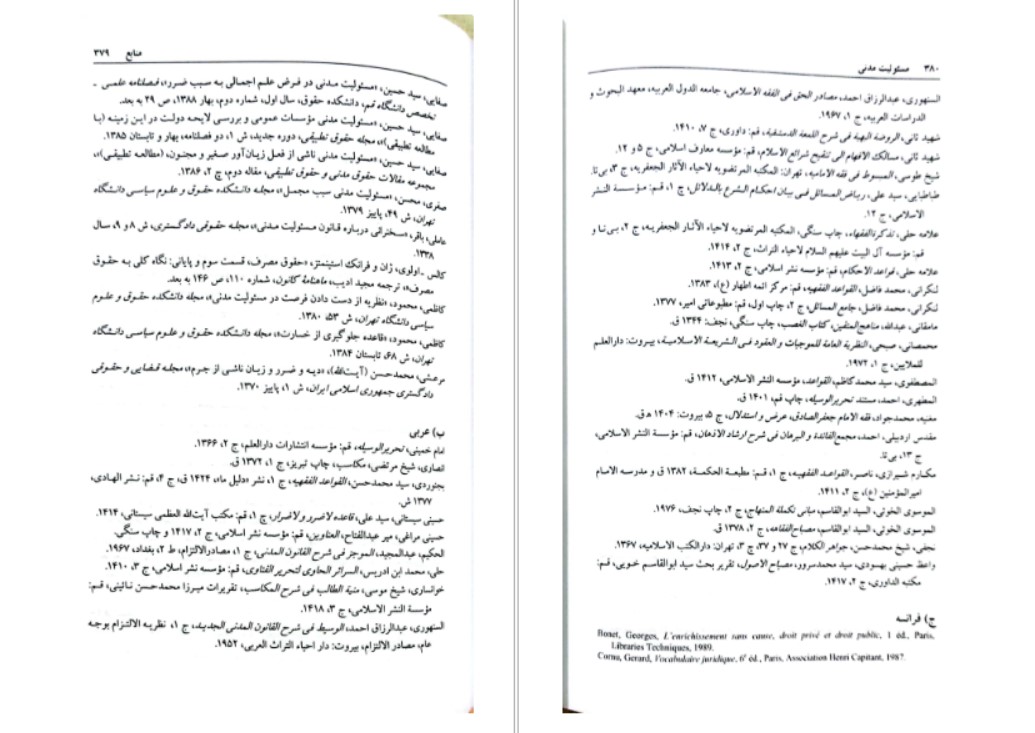 منابع ۳۷۹
صفایی، سید حسین، «مسئولیت مدنی در فرض علم اجمالی به سبب ضرر»، فصلنامه علمی -
تخصصی دانشگاه قم، دانشکده حقوق، سال اول، شماره دوم، بهار ۱۳۸۸، ص ۲۹ به بعد.
صفایی، سید حسین، «مسئولیت مدنی مؤسسات عمومی و بررسی لایحه دولت در این زمینه (با
مطالعه تطبیقی)»، مجله حقوق تطبیقی، دوره جدید، ش ۱، دو فصلنامه، بهار و تابستان ۱۳۸۵.
صفایی، سید حسین، «مسئولیت مدنی ناشی از فعل زیان‌آور صغیر و مجنون، (مطالعه تطبیقی)»،
مجموعه مقالات حقوق مدنی و حقوق تطبیقی، مقاله دوم، چ ۲، ۱۳۸۶.
صفری، محسن، «مسئولیت مدنی سبب مجمل»، مجله دانشکده حقوق و علوم سیاسی دانشگاه
تهران، ش ۴۹، پاییز ۱۳۷۹.
عاملی، باقر، «سخنرانی درباره قانون مسئولیت مدنی»، مجله حقوقی دادگستری، ش ۸ و ۹، سال
۱۳۳۸.
کالس ـ اولوی، ژان و فرانک استینمتز، «حقوق مصرف، قسمت سوم و پایانی: نگاه کلی به حقوق
مصرف»؛ ترجمه مجید ادیب، ماهنامهٔ کانون، شماره ۱۱۰، ص ۱۴۶ به بعد.
کاظمی، محمود، «نظریه از دست دادن فرصت در مسئولیت مدنی»، مجله دانشکده حقوق و علوم
سیاسی دانشگاه تهران، ش ۵۳، ۱۳۸۰.
کاظمی، محمود، «قاعده جلوگیری از خسارت»، مجله دانشکده حقوق و علوم سیاسی دانشگاه
تهران، ش ۶۸، تابستان ۱۳۸۴.
مرعشی، محمدحسن (آیت‌الله)، «دیه و ضرر و زیان ناشی از جرم»، مجله قضایی و حقوقی
دادگستری جمهوری اسلامی ایران، ش ۱، پاییز ۱۳۷۰.
ب) عربی
امام خمینی، تحریرالوسیله، قم: مؤسسه انتشارات دارالعلم، ج ۲، ۱۳۶۶.
انصاری، شیخ مرتضی، مکاسب، چاپ تبریز، ج ۱، ۱۳۷۲ ق.
بجنوردی، سید محمدحسن، القواعد الفقهیه، ج ۱، نشر «دلیل ما»، ۱۴۲۴ ق، ج ۴، قم: نشر الهادی،
۱۳۷۷ ش.
حسینی سیستانی، سید علی، قاعده لاضرر و لاضرار، ج ۱، قم: مکتب آیت‌الله العظمی سیستانی، ۱۴۱۴.
حسینی مراغی، میر عبدالفتاح، العناوین، قم: مؤسسه نشر اسلامی، ج ۲، ۱۴۱۷ و چاپ سنگی.
الحکیم، عبدالمجید، الموجز فی شرح القانون المدنی، ج ۱، مصادرالالتزام، ط ۲، بغداد، ۱۹۶۷.
حلی، محمد ابن ادریس، السرائر الحاوی لتحریر الفتاوی، قم: مؤسسه نشر اسلامی، ج ۳، ۱۴۱۰.
خوانساری، شیخ موسی، منیة الطالب فی شرح المکاسب، تقریرات میرزا محمدحسن نائینی، قم:
مؤسسة النشر الاسلامی، ج ۳، ۱۴۱۸.
السنهوری، عبدالرزاق احمد، الوسیط فی شرح القانون المدنی الجدید، ج ۱، نظریه الالتزام بوجه
عام، مصادر الالتزام، بیروت: دار احیاء التراث العربی، ۱۹۵۲.
۳۸۰ مسئولیت مدنی
السنهوری، عبدالرزاق احمد، مصادر الحق فی الفقه الاسلامی، جامعه الدول العربیه، معهد البحوث و
الدراسات العربیه، ج ۱، ۱۹۶۷.
شهید ثانی، الروضة البهیة فی شرح اللمعة الدمشقیة، قم: داوری، ج ۷، ۱۴۱۰.
شهید ثانی، مسالک الافهام الی تنقیح شرائع الاسلام، قم: مؤسسه معارف اسلامی، ج ۵ و ۱۲.
شیخ طوسی، المبسوط فی فقه الامامیه، تهران: المکتبه المرتضویه لاحیاء الآثار الجعفریه، ج ۳، بی‌تا.
طباطبایی، سید علی، ریاض المسائل فی بیان احکام الشرع بالدلائل، ج ۱، قم: مؤسسة النشر
الاسلامی، ج ۱۲.
علامه حلی، تذکرة‌الفقهاء، چاپ سنگی، المکتبه المرتضویه لاحیاء الآثار الجعفریه، ج ۲، بی‌تا و
قم: مؤسسه آل البیت علیهم السلام لاحیاء التراث، ج ۲، ۱۴۱۴.
علامه حلی، قواعد الاحکام، قم: مؤسسه نشر اسلامی، ج ۲، ۱۴۱۳.
لنکرانی، محمد فاضل، القواعد الفقهیه، قم: مرکز ائمه اطهار (ع)، ۱۳۸۳.
لنکرانی، محمد فاضل، جامع المسائل، ج ۲، چاپ اول، قم: مطبوعاتی امیر، ۱۳۷۷.
مامقانی، عبدالله، مناهج‌المتقین، کتاب الغصب، چاپ سنگی، نجف: ۱۳۴۴ ق.
محمصانی، صبحی، النظریة العامة للموجبات و العقود فی الشریعة الاسلامیة، بیروت: دارالعلم
للملایین، ج ۱، ۱۹۷۲.
المصطفوی، سید محمد کاظم، القواعد، مؤسسه النشر الاسلامی، ۱۴۱۲ ق.
المطهری، احمد، مستند تحریرالوسیله، چاپ قم، ۱۴۰۱ ق.
مغنیه، محمدجواد، فقه الامام جعفرالصادق، عرض و استدلال، ج ۵، بیروت: ۱۴۰۴ ه‍.ق.
مقدس اردبیلی، احمد، مجمع‌الفائدة و البرهان فی شرح ارشاد الاذهان، قم: مؤسسة النشر الاسلامی،
ج ۱۳، بی‌تا.
مکارم شیرازی، ناصر، القواعد الفقهیه، ج ۱، قم: مطبعة الحکمة، ۱۳۸۲ ق و مدرسه الامام
امیرالمؤمنین (ع)، ج ۲، ۱۴۱۱.
الموسوی الخوئی، السید ابوالقاسم، مبانی تکملة المنهاج، ج ۲، چاپ نجف، ۱۹۷۶.
الموسوی الخوئی، السید ابوالقاسم، مصباح‌الفقاهه، ج ۲، ۱۳۷۸ ق.
نجفی، شیخ محمدحسن، جواهر الکلام، ج ۲۷ و ۳۷، چ ۳، تهران: دارالکتب الاسلامیه، ۱۳۶۷.
واعظ حسینی بهسودی، سید محمدسرور، مصباح الاصول، تقریر بحث سید ابوالقاسم خویی، قم:
مکتبه الداوری، ج ۲، ۱۴۱۷.
ج) فرانسه
Bonet, Georges, L'enrichissement sans cause, droit privé et droit public, 1 éd., Paris,
Libraries Techniques, 1989.
Cornu, Gerard, Vocabulaire juridique, 6e éd., Paris, Association Henri Capitant, 1987.